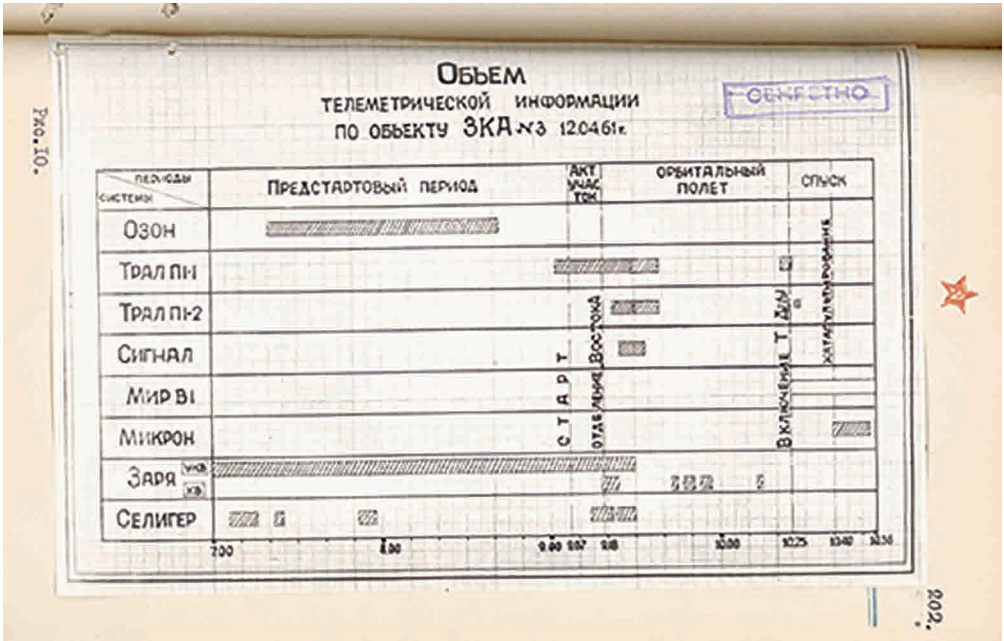 Рис.10.
ОБЬЕМ
ТЕЛЕМЕТРИЧЕСКОЙ ИНФОРМАЦИИ
ПО ОБЬЕКТУ 3КА №3 12.04.61г.
СЕКРЕТНО
ПЕРИОДЫ
СИСТЕМЫ
ПРЕДСТАРТОВЫЙ ПЕРИОД
АКТ.
УЧАС
ТОК
ОРБИТАЛЬНЫЙ
ПОЛЕТ
СПУСК
ОЗОН
ТРАЛ П1-1
ТРАЛ П1-2
СИГНАЛ
МИР В1
МИКРОН
ЗАРЯ
УКВ
КВ
СЕЛИГЕР
СТАРТ
ОТДЕЛЕНИЕ ВОСТОКА
ВКЛЮЧЕНИЕ ТДУ
КАТАПУЛЬТИРОВАНИЕ
7.00 8.00 9.00 9.07 9.18 10.00 10.25 10.40
202.